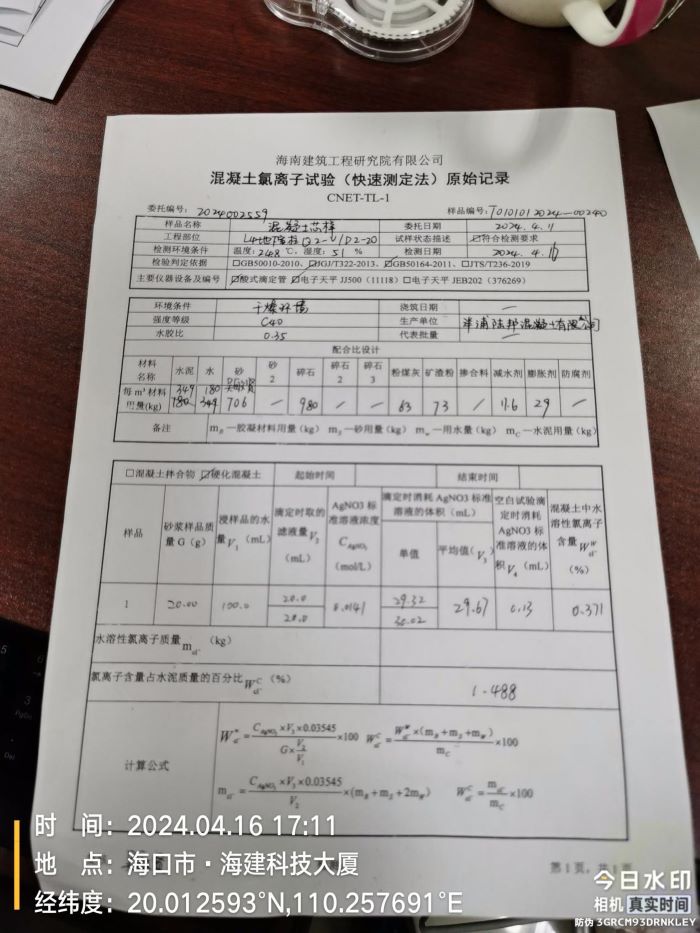 海南建筑工程研究院有限公司
混凝土氯离子试验（快速测定法）原始记录
CNET-TL-1
委托编号： 2024002559 样品编号： T0101012024-00240
样品名称 混凝土芯样 委托日期 2024.4.11
工程部位 试样状态描述 ☑符合检测要求
检测环境条件 温度：24.8 ℃，湿度：51 % 检测日期 2024.4.16
检验判定依据 □GB50010-2010、☑JGJ/T322-2013、☑GB50164-2011、□JTS/T236-2019
主要仪器设备及编号 ☑酸式滴定管 ☑电子天平 JJ500（11118）□电子天平 JEB202（376269）
环境条件 干燥环境 浇筑日期 —
强度等级 C40 生产单位 洋浦陆邦混凝土有限公司
水胶比 0.35 代表批量 —
配合比设计
材料名称 水泥 水 砂 砂2 碎石 碎石2 碎石3 粉煤灰 矿渣粉 掺合料 减水剂 膨胀剂 防腐剂
349 180
每 m³材料用量(kg) 706 — 980 — — 63 73 — 7.6 29 —
备注 mB —胶凝材料用量（kg） mS —砂用量（kg） mw —用水量（kg） mC —水泥用量（kg）
□混凝土拌合物 ☑硬化混凝土 起始时间 结束时间
样品 砂浆样品质量 G（g） 浸样品的水量V1（mL） 滴定时取的滤液量V2（mL） AgNO3 标准溶液浓度 CAgNO3（mol/L） 滴定时消耗 AgNO3 标准溶液的体积（mL） 空白试验滴定时消耗 AgNO3 标准溶液的体积V4（mL） 混凝土中水溶性氯离子含量Wcl-W（%）
单值 平均值（V3）
1 20.00 100.0 20.0 0.0141 29.32 29.67 0.13 0.371
20.0 30.02
水溶性氯离子质量 mcl-（kg）
氯离子含量占水泥质量的百分比Wcl-C（%） 1.488
计算公式
Wcl-W = CAgNO3×V3×0.03545 / (G×V2/V1) ×100 Wcl-C = Wcl-W×(mB+mS+mw) / mC ×100
mcl- = CAgNO3×V3×0.03545 / V2 ×(mB+mS+2mw) Wcl-C = mcl- / mC ×100
第 1 页，共 1 页
时 间：2024.04.16 17:11
地 点：海口市·海建科技大厦
经纬度：20.012593°N,110.257691°E
今日水印
相机 真实时间
防伪 3GRCM93DRNKLEY